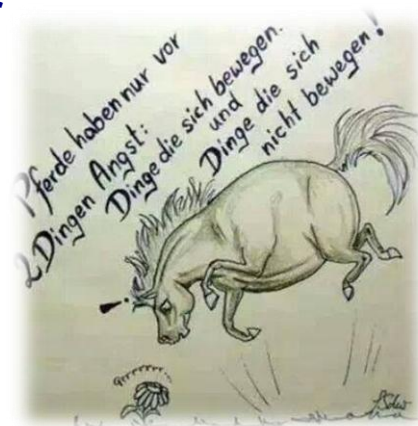 Pferde haben nur vor
2 Dingen Angst:
Dinge die sich bewegen.
und
Dinge die sich
nicht bewegen!
!
Grrrrrr...